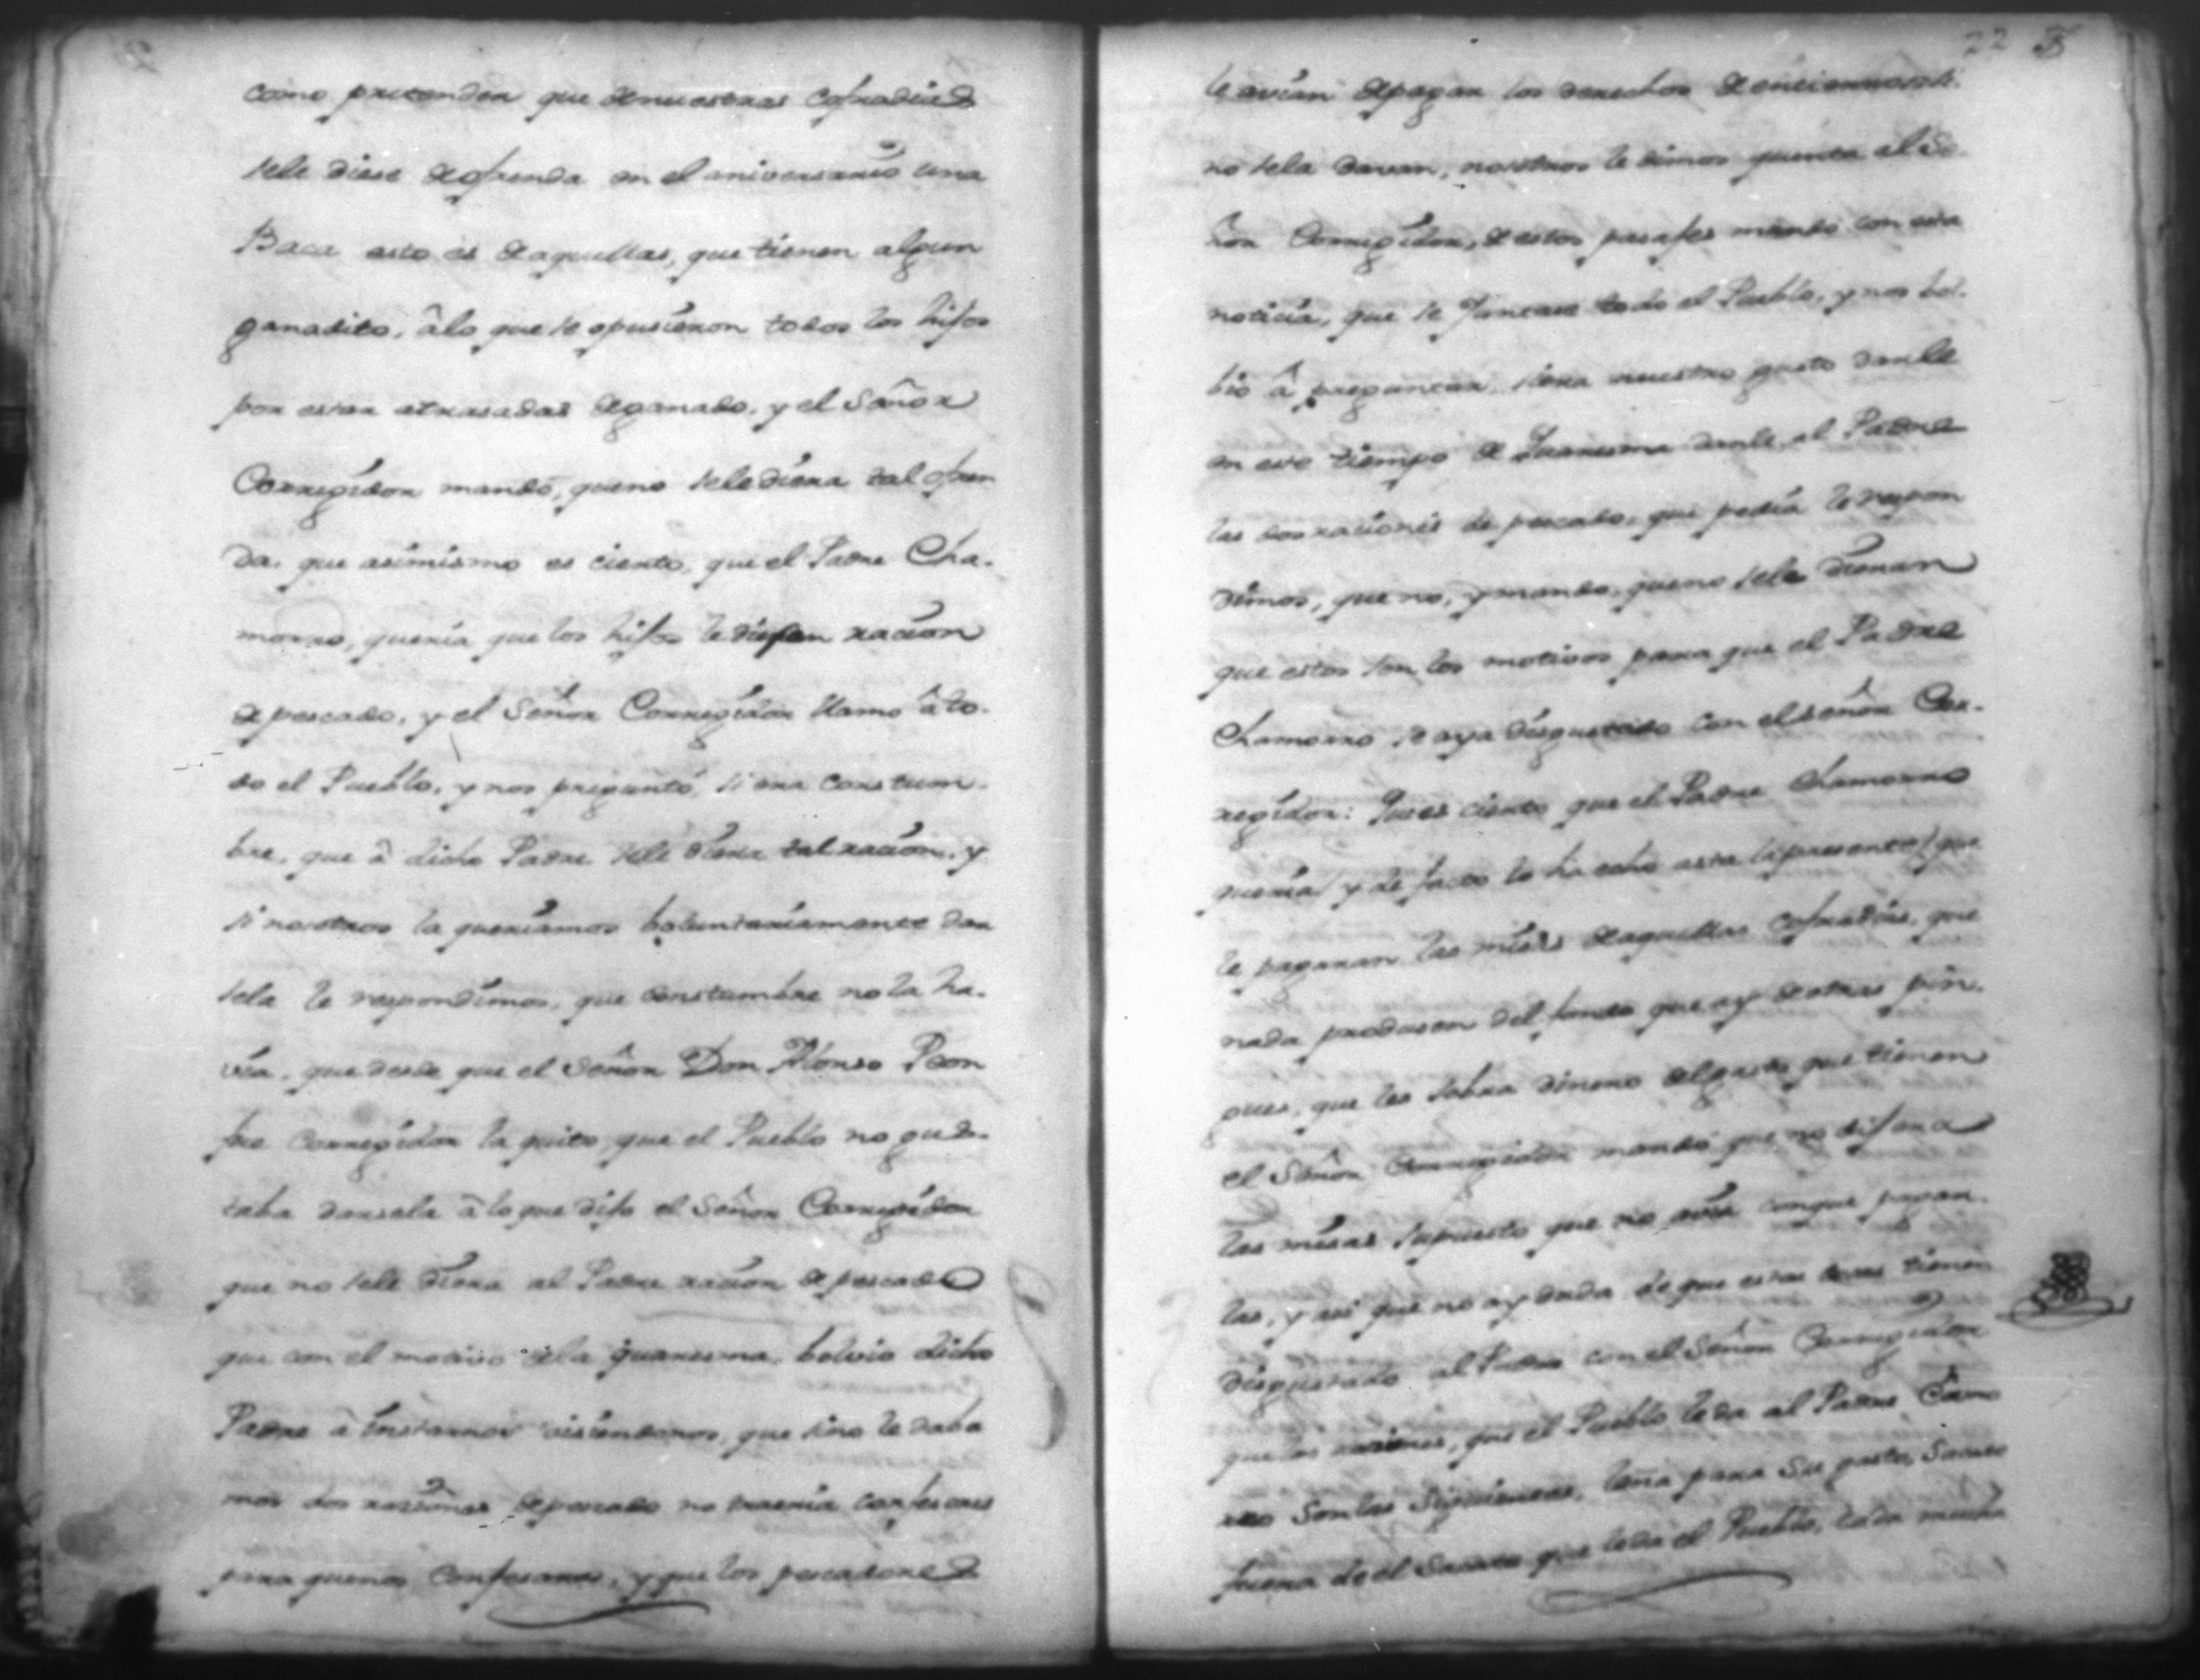 como pretender que de nuestras cofradias
sele diese de ofrenda en el aniversario una
Baca esto es de aquellas, que tienen algun
ganadito, â lo que se opusieron todos los hijos
por estar atrasadas de ganado, y el Señor
Corregidor mandó, que no sele diera tal ofren
da. que asimismo es cierto, que el Padre Cha-
morro, queria que los hijos le diesen racion
de pescado, y el Señor Corregidor llamo â to-
do el Pueblo, y nos preguntó, si era constum-
bre, que â dicho Padre sele diera tal racion, y
si nosotros la queriamos boluntariamente dar
sela le respondimos, que constumbre no la ha-
via, que desde que el Señor Don Alonso Peon
fue Corregidor la quito, que el Pueblo no gus-
taba darsela â lo que dijo el Señor Corregidor
que no sele diera al Padre racion de pescado
que con el motivo dela quaresma, bolvio dicho
Padre â instarnos disiendonos, que sino le daba
mos dos rasiones de pescado no traeria confesores
para que nos confesaran, y que los pescadores
22
le avian de pagar los derechos de entierro si
no sela davan, nosotros le dimos quenta al Se
ñor Corregidor, de estos pasajes mando con esta
noticia, que se juntase todo el Pueblo, y nos bol-
bio â preguntar si era nuestro gusto darle
en este tiempo de Quaresma darle al Padre
las dos raciones de pescado, que pedia le respon
dimos, que no, y mando, que no sela dieran
que estos son los motivos para que el Padre
Chamorro se aya disgustado con el señor Cor-
regidor: Pues cierto que el Padre Chamorro
queria (y de facto lo ha echo asta la presente) que
le pagaran las misas de aquellas cofradias, que
nada produsen del fondo que ay de otras pin-
gues, que les sobra dinero del gasto que tienen
el Señor Corregidor mandó que no dijera
las misas supuesto que no avia conque pagar-
las, y asi que no ay duda de que estas cosas tienen
disgustado al Padre con el Señor Corregidor
que las rasiones, que el Pueblo le da al Padre Cham
rro son las siguientes, leña para su gasto, Sacate
fuera de el Sacate que le da el Pueblo, le da mucha